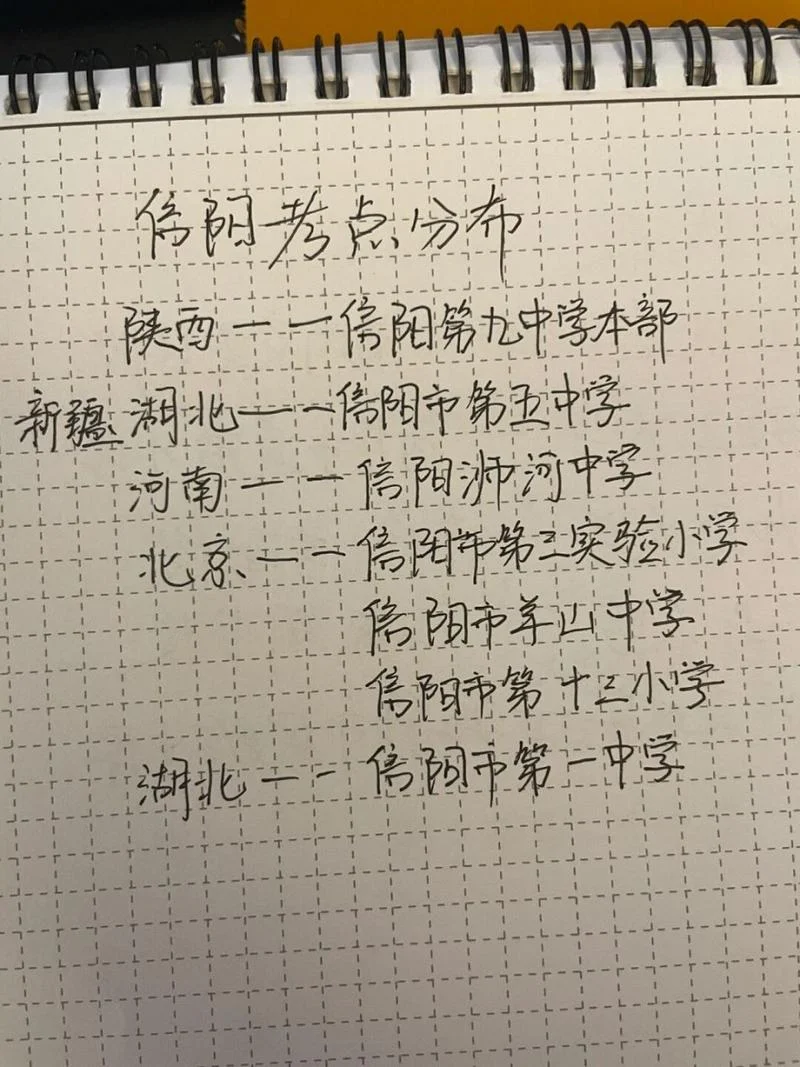 信阳考点分布
陕西——信阳第九中学本部
新疆、湖北——信阳市第五中学
河南——信阳浉河中学
北京——信阳市第三实验小学
信阳市羊山中学
信阳市第十三小学
湖北——信阳市第一中学